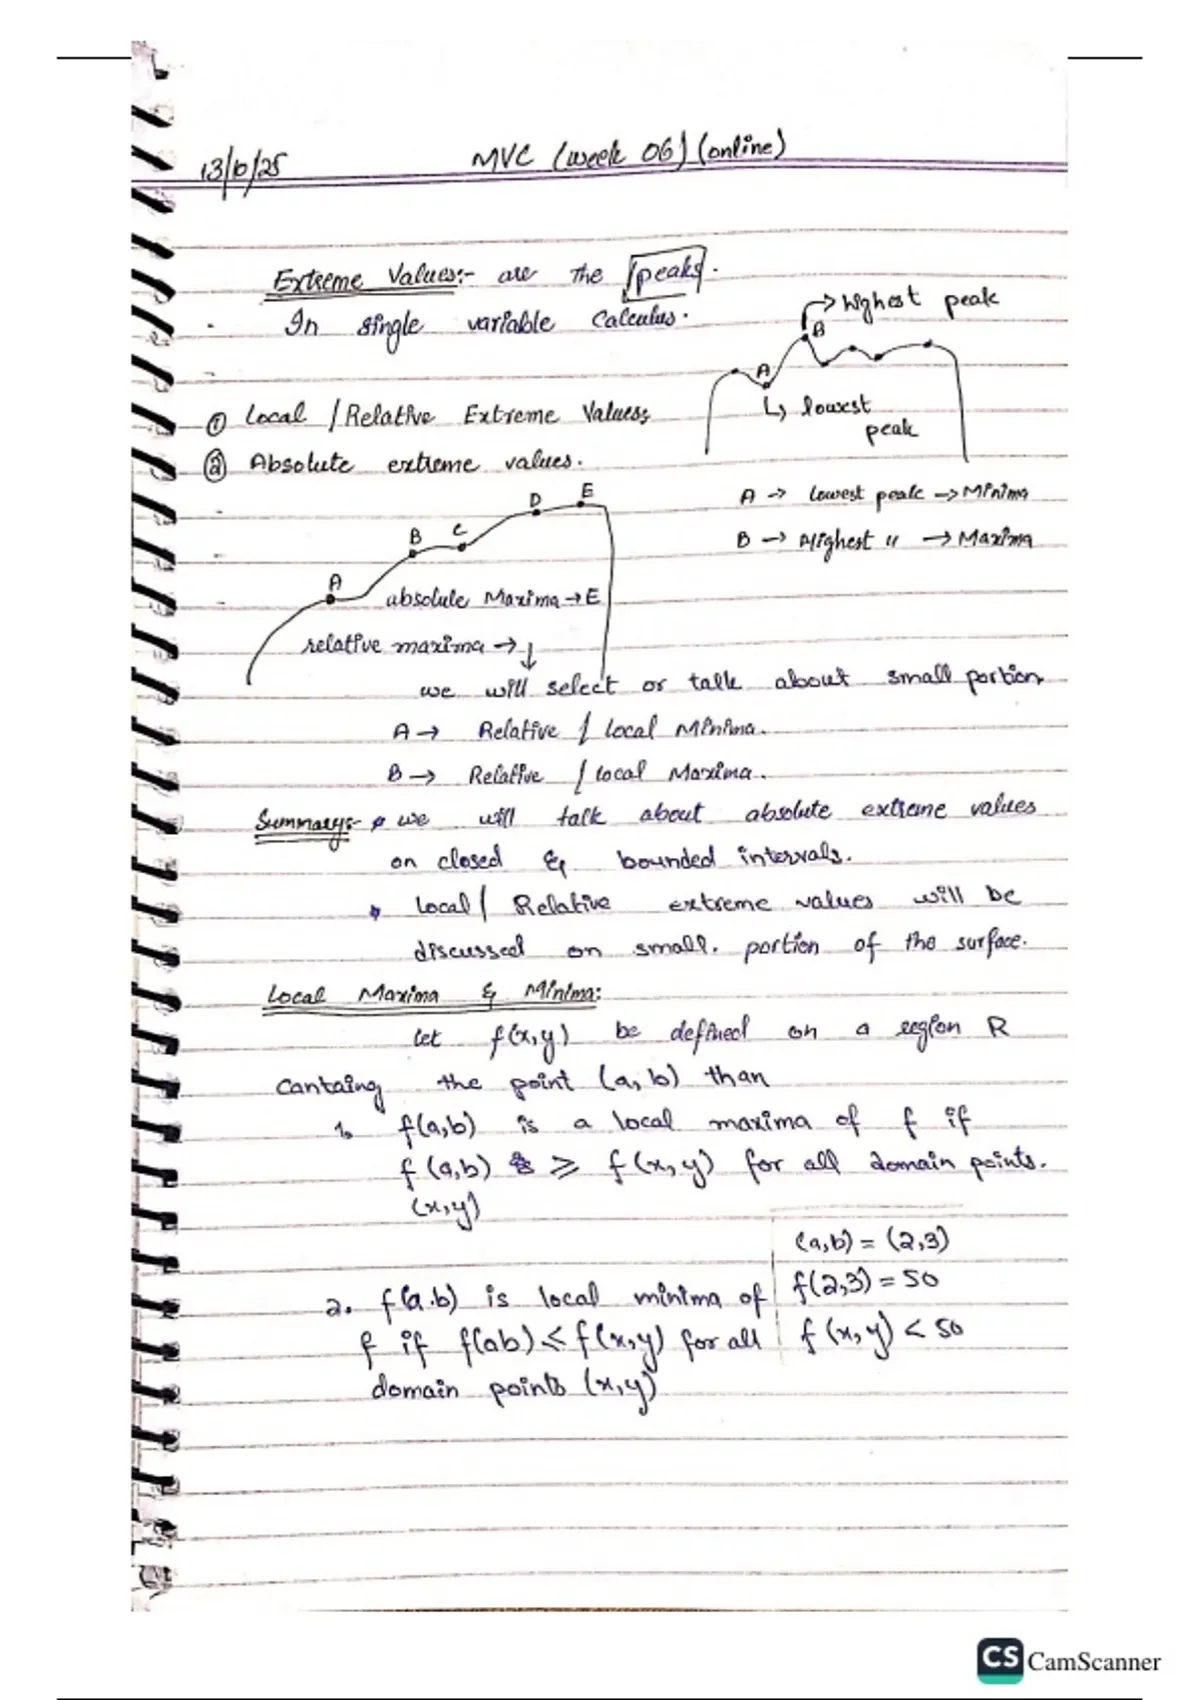 13/10/25
MVC (week 06) (online)
Extreme Values:- are the peaks.
In single variable Calculus.
→ Highest peak
B
A
↳ lowest
peak
① Local / Relative Extreme Values;
② Absolute extreme values.
A → lowest peak → Minima
B → Highest " → Maxima
A B C D E
absolute Maxima → E
relative maxima → ↓
we will select or talk about small portion
A → Relative / local Minima.
B → Relative / local Maxima.
Summary:- we will talk about absolute extreme values
on closed & bounded intervals.
Local / Relative extreme values will be
discussed on small. portion of the surface.
Local Maxima & Minima:
let f(x,y) be defined on a region R
Cantaing the point (a, b) than
1. f(a,b) is a local maxima of f if
f(a,b) ≥ f(x,y) for all domain points.
(x,y)
2. f(a.b) is local minima of
f if f(ab) ≤ f(x,y) for all
domain points (x,y)
(a,b) = (2,3)
f(2,3) = 50
f(x,y) < 50
CS CamScanner